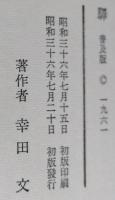 駅 普及版 © 一九六一
昭和三十六年七月十五日 初版印刷
昭和三十六年七月二十日 初版發行
著作者 幸田文